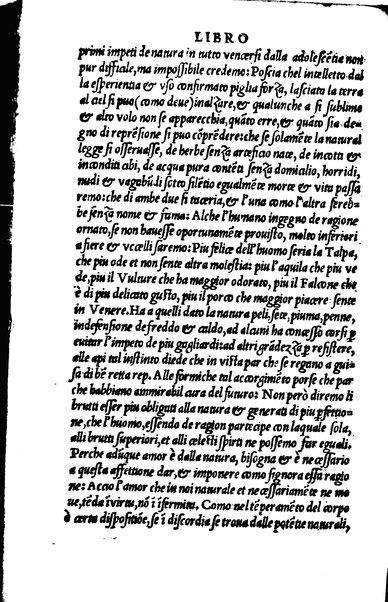 LIBRO
primi impeti de natura in tutto vencersi dalla adolescẽtia non
pur difficile, ma impossibile credemo: Poscia chel intelletto dal
la esperientia & vso confirmato piglia forza, lasciata la terra
al ciel si puo (como deue) inalzare, & qualunche a si sublime
& alto volo non se apparecchia, quãto erre, & quãto sia de
gno di reprẽsione si puo cõprẽdere: che se solamẽte la natural
legge si osseruasse, de herbe senza artefitio nate, de incotti &
inconditi abi, de acqua pura contẽti senza domicilio, horridi,
nudi & vagabũdi sotto silẽtio egualmẽte morte & vita passa
remo: che di ambe due si taceria, & l'una como l'altra fereb-
be senza nome & fama: Alche l'humano ingegno de ragione
ornato, se non hauesse oportunamẽte prouisto, molto inferiori
a fiere & vccelli saremo: Piu felice dell'huomo seria la Talpa,
che piu ode et non sente altra molestia: piu l'aquila che piu ve
de, piu il Vulture che ha maggior odorato, piu il Falcone che
è di piu delicato gusto, piu il porco che maggior piacere sente
in Venere. Ha a quelli dato la natura peli, sete, piuma, penne,
in defensione de freddo & caldo, ad alcuni ha concesso corsi p
euitar l'impeto de piu gagliardi: ad altri grãdezza p resistere,
alle api tal instinto diede che in vista par che se regano a gui
sa di bẽ retta rep. Alle formiche tal accorgimẽto porse che par
che habbiano ammirabil cura del futuro: Non però diremo li
brutti esser piu obligati alla natura & generati di piu pfettio
ne, che l'huomo, essendo de ragion partecipe con laquale sola,
alli brutti superiori, et alli celesti spirti ne possemo far eguali.
Perche adũque amor è dalla natura, bisogna & è necessario
a questa affettione dar, & imponere como fignora essa ragio
ne: Accio l'amor che in noi naturale et necessariamẽte ne mo
ue, tẽda ĩ virtu, nõ ĩ ifermita. Como nel tẽperamẽto del corpo
è certa dispositiõe, se ĩ discordia se troua dalle potẽtie naturali,